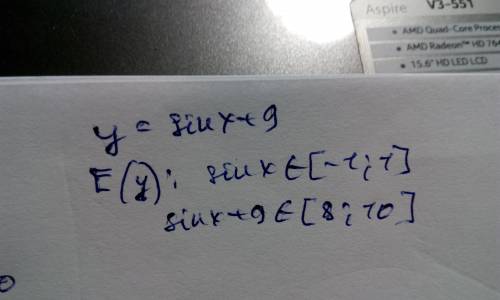 Aspire V3-551
• AMD Quad-Core Proce
• AMD Radeon™ HD 764
• 15.6" HD LED LCD
y = sinx+9
E(y): sinx∈[-1;1]
sinx+9∈[8;10]